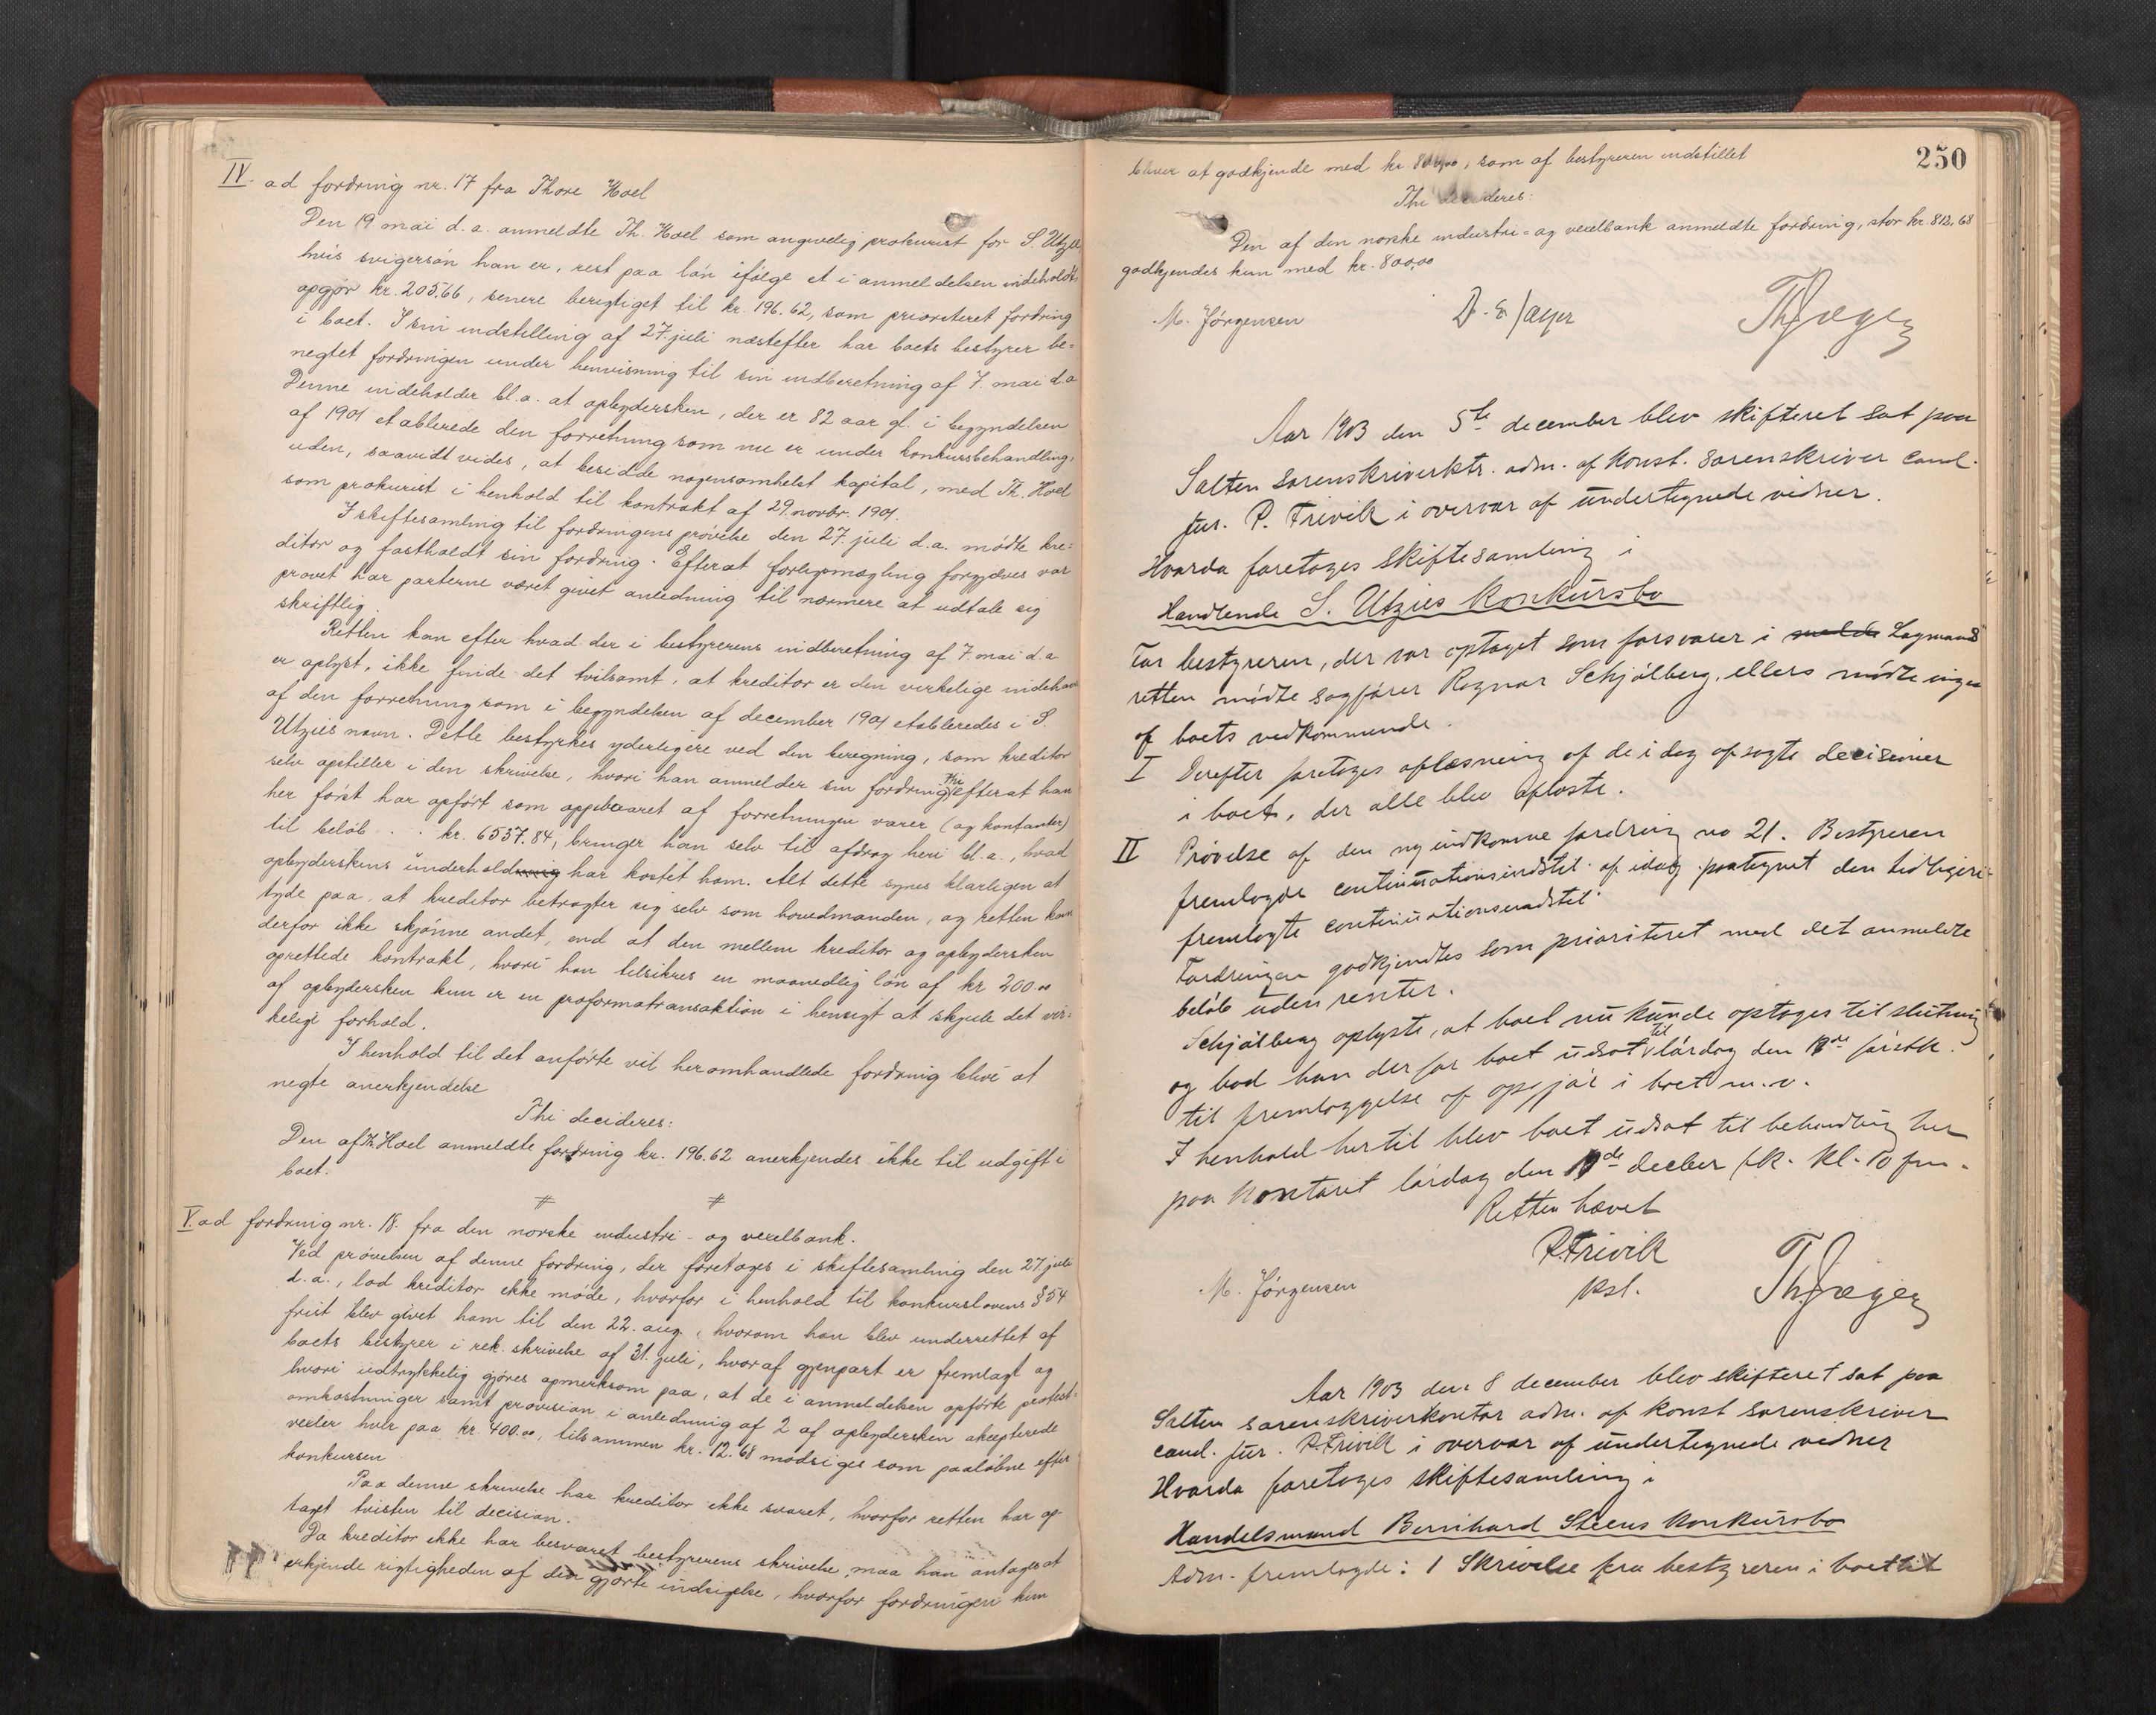 IV. ad fordring nr. 17 fra Thore Hoel
Den 19 mai d. a. anmeldte Th. Hoel som angivelig prokurist for S. Utzie
hvis svigersøn han er, rest paa løn ifølge et i anmeldelsen indeholdt
opgjør kr. 205.66, senere berigtiget til kr. 196.62, som prioriteret fordring
i boet. I sin indstilling af 27. juli næstefter har boets bestyrer be-
negtet fordringen under henvisning til sin indberetning af 7. mai d. a
Denne indeholder bl. a. at opbydersken, der er 82 aar gl. i begyndelsen
af 1901 etablerede den forretning som nu er under konkursbehandling,
uden, saavidt vides, at besidde nogensomhelst kapital, med Th. Hoel
som prokurist i henhold til kontrakt af 29. novbr. 1901.
I skiftesamling til fordringens prøvelse den 27. juli d. a. mødte kre-
ditor og fastholdt sin fordring. Efterat forligsmægling forgjæves var
prøvet har parterne været givet anledning til nærmere at udtale sig
skriftlig.
Retten kan efter hvad der i bestyrerens indberetning af 7. mai d. a
er oplyst, ikke finde det tvilsomt, at kreditor er den virkelige indehav
af den forretning som i begyndelsen af december 1901 etableredes i S.
Utzies navn. Dette bestyrkes yderligere ved den beregning, som kreditor
selv opstiller i den skrivelse, hvori han anmelder sin fordring, thi efterat han
her først har opført som oppebaaret af forretningen varer (og kontanter)
til beløb . . kr. 6537.84, bringer han selv til afdrag heri bl. a., hvad
opbyderskens underholdning har kostet ham. Alt dette synes klarligen at
tyde paa, at kreditor betragter sig selv som hovedmanden, og retten kan
derfor ikke skjønne andet, end at den mellem kreditor og opbydersken
oprettede kontrakt, hvori han tilsikres en maanedlig løn af kr 200.00
af opbydersken kun er en proformatransaktion i hensigt at skjule det vir-
kelige forhold.
I henhold til det anførte vil heromhandlede fordring blive at
negte anerkjendelse
Thi decideres:
Den af Th. Hoel anmeldte fordring kr. 196.62 anerkjendes ikke til udgift i
boet.
# #
V. ad fordring nr. 18. fra den norske industri- og vexelbank.
Ved prøvelsen af denne fordring, der foretoges i skiftesamling den 27. juli
d. a., lod kreditor ikke møde, hvorfor i henhold til konkurslovens § 54
frist blev givet ham til den 22. aug., hvorom han blev underrettet af
boets bestyrer i rek. skrivelse af 31. juli, hvoraf gjenpart er fremlagt og
hvori udtrykkelig gjøres opmerksom paa, at de i anmeldelsen opførte protest-
omkostninger samt provision i anledning af 2 af opbydersken aksepterede
vexler hver paa kr. 400.00, tilsammen kr. 12.68 modsiges som paaløbne efter
konkursen
Paa denne skrivelse har kreditor ikke svaret, hvorfor retten har op-
taget tvisten til decision.
Da kreditor ikke har besvaret bestyrerens skrivelse, maa han antages at
erkjende rigtigheden af den gjorte indsigelse, hvorfor fordringen kun
250
bliver at godkjende med kr. 800,00, som af bestyreren indstillet
Thi decideres:
Den af den norske industri- og vexelbank anmeldte fordring, stor kr. 812,68
godkjendes kun med kr. 800,00
M. Jørgensen D. E. Jæger Th Jæger
Aar 1903 den 5te december blev skifteret sat paa
Salten sorenskriverktr. adm. af konst. sorenskriver cand.
jur. P. Trivik i overvær af undertegnede vidner.
Hvorda foretoges skiftesamling i
Handlende S. Utzies konkursbo
For bestyreren, der var optaget som forsvarer i Lagmands
retten mødte sagfører Ragnar Schjølberg, ellers mødte ingen
af boets vedkommende.
I Derefter foretoges oplæsning af de i dag afsagte decisioner
i boet, der alle blev oplæste.
II Prøvelse af den nyindkomne fordring no 21. Bestyreren
fremlagde continuationsindstil. af idag paategnet den tidligere
fremlagte continuationsindstil.
Fordringen godkjendtes som prioriteret med det anmeldte
beløb uden renter.
Schjølberg oplyste, at boet nu kunde optages til slutning
og bad han derfor boet udsat til lørdag den førstk.
til fremlæggelse af opgjør i boet m. v.
I henhold hertil blev boet udsat til behandling her
paa kontoret lørdag den decber fk. kl. 10 fm.
Retten hævet
P. Trivik
kst.
M. Jørgensen Th Jæger
Aar 1903 den 8 december blev skifteret sat paa
Salten sorenskriverkontor adm. af konst sorenskriver
cand. jur. P. Trivik i overvær af undertegnede vidner
Hvorda foretoges skiftesamling i
Handelsmand Bernhard Steens konkursbo
Adm. fremlagde: 1 Skrivelse fra bestyreren i boet til